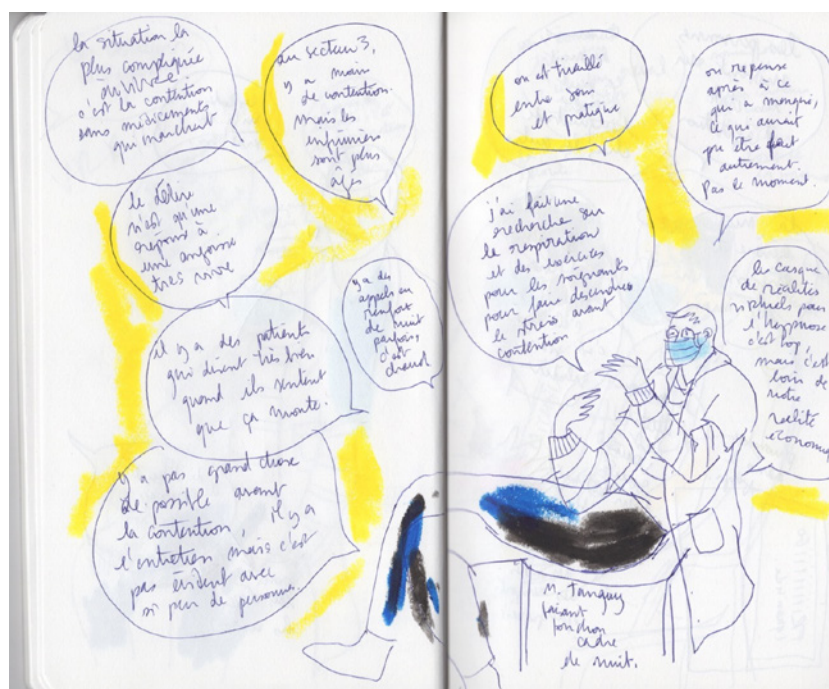 la situation la
plus compliquée
à vivre
c'est la contention
sans médicaments
qui marchent
au secteur 3,
y a moins
de contention.
mais les
infirmiers
sont plus
âgés
le délire
n'est qu'une
réponse à
une angoisse
très vive
y a des
appels en
renfort
de nuit
parfois,
c'est
chaud
il y a des patients
qui disent très bien
quand ils sentent
que ça monte.
y a pas grand chose
de possible avant
la contention, il y a
l'entretien mais c'est
pas évident avec
si peu de personnes.
on est tiraillé
entre soin
et pratique
on repense
après à ce
qui a manqué,
ce qui aurait
pu être fait
autrement.
Pas le moment.
j'ai fait une
recherche sur
la respiration
et des exercices
pour les soignants
pour faire descendre
le stress avant
contention
le casque
de réalités
pour
l'hypnose
c'est top,
mais c'est
loin de
notre
réalité
M. Tanguy
faisant
fonction
cadre
de nuit.